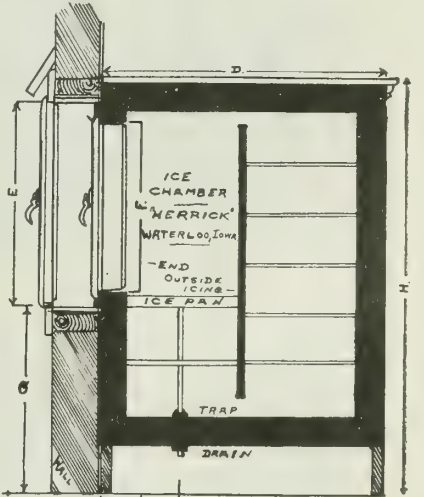 D.
E
F.
ICE
CHAMBER
"HERRICK"
WATERLOO, IOWA
-END
OUTSIDE
ICING-
ICE PAN
H.
G
TRAP
DRAIN
WALL